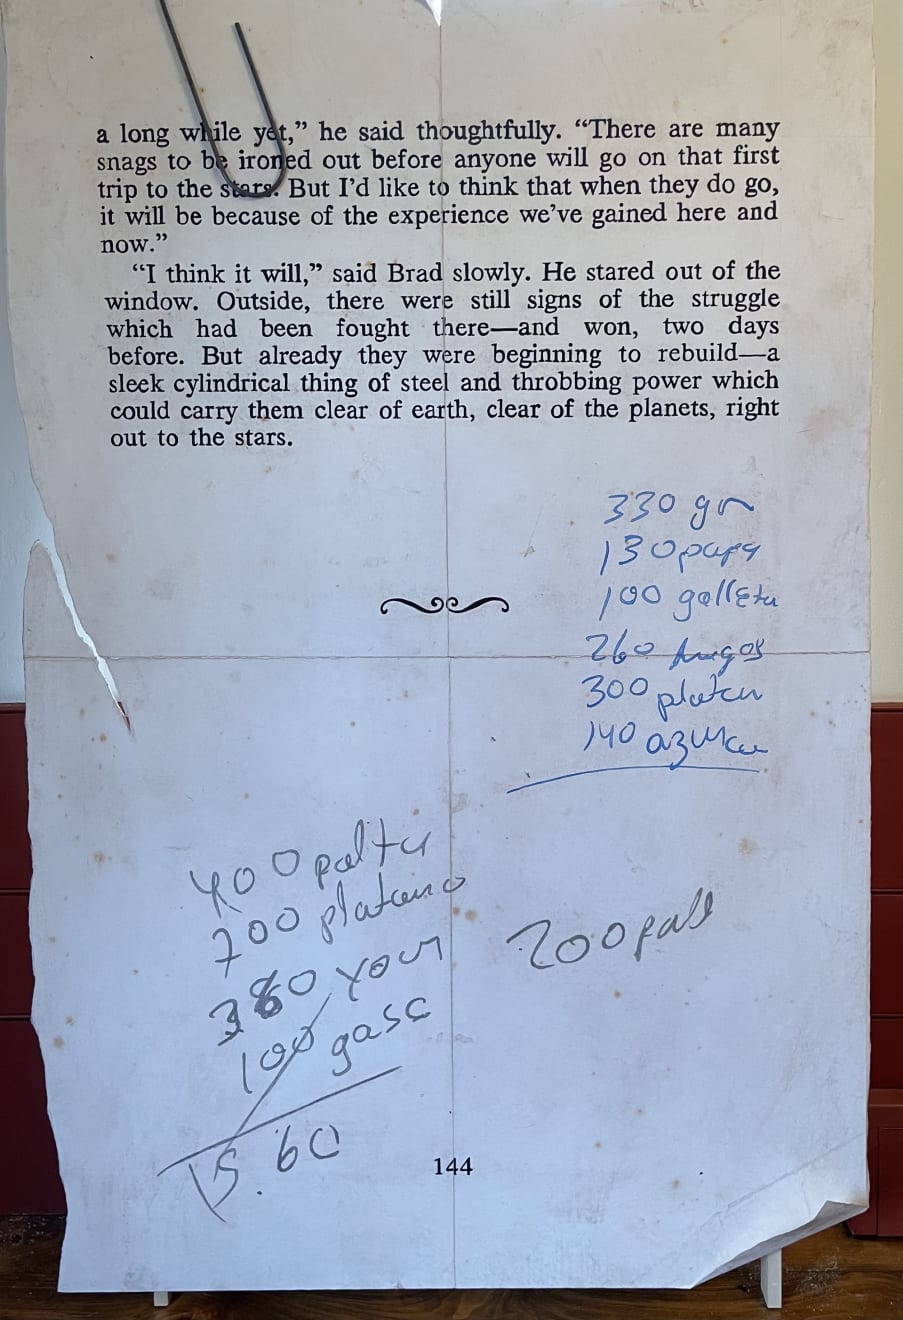 a long while yet,” he said thoughtfully. “There are many
snags to be ironed out before anyone will go on that first
trip to the stars. But I’d like to think that when they do go,
it will be because of the experience we’ve gained here and
now.”
“I think it will,” said Brad slowly. He stared out of the
window. Outside, there were still signs of the struggle
which had been fought there—and won, two days
before. But already they were beginning to rebuild—a
sleek cylindrical thing of steel and throbbing power which
could carry them clear of earth, clear of the planets, right
out to the stars.
330
130 papa
100 galleta
260
300
140 azuca
400 palta
200 platano
380
100 gase
15.60
200
144